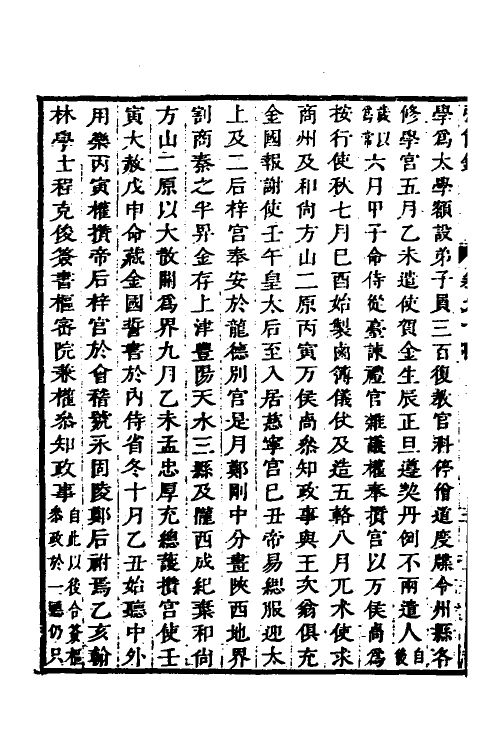 學爲太學額設弟子員三百復教官科停僧道度牒令州縣各
修學宮五月乙未遣使賀金生辰正旦遵契丹例不兩遣人自後
歲以爲常六月甲子命侍從臺諫禮官雜議權奉攢宮以万俟卨爲
按行使秋七月己酉始製鹵簿儀仗及造五輅八月兀术使求
商州及和尙方山二原丙寅万俟卨叅知政事與王次翁俱充
金國報謝使壬午皇太后至入居慈寧宮己丑帝易緦服迎太
上及二后梓宮奉安於龍德別宮是月鄭剛中分畫陝西地界
割商秦之半畀金存上津豐陽天水三縣及隴西成紀棄和尙
方山二原以大散關爲界九月乙未孟忠厚充總護攢宮使壬
寅大赦戊申命藏金國誓書於內侍省冬十月乙丑始聽中外
用樂丙寅權攢帝后梓宮於會稽號永固陵鄭后祔焉乙亥翰
林學士程克俊簽書樞密院兼權叅知政事自此以後合簽樞叅政於一聽仍只